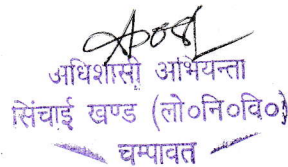 अधिशासी अभियन्ता
सिंचाई खण्ड (लो०नि०वि०)
चम्पावत